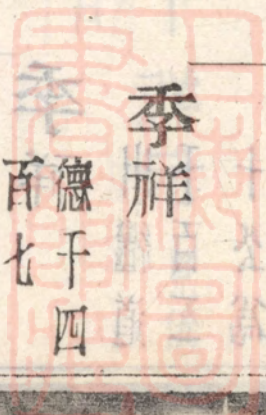 季祥
德千四
百七